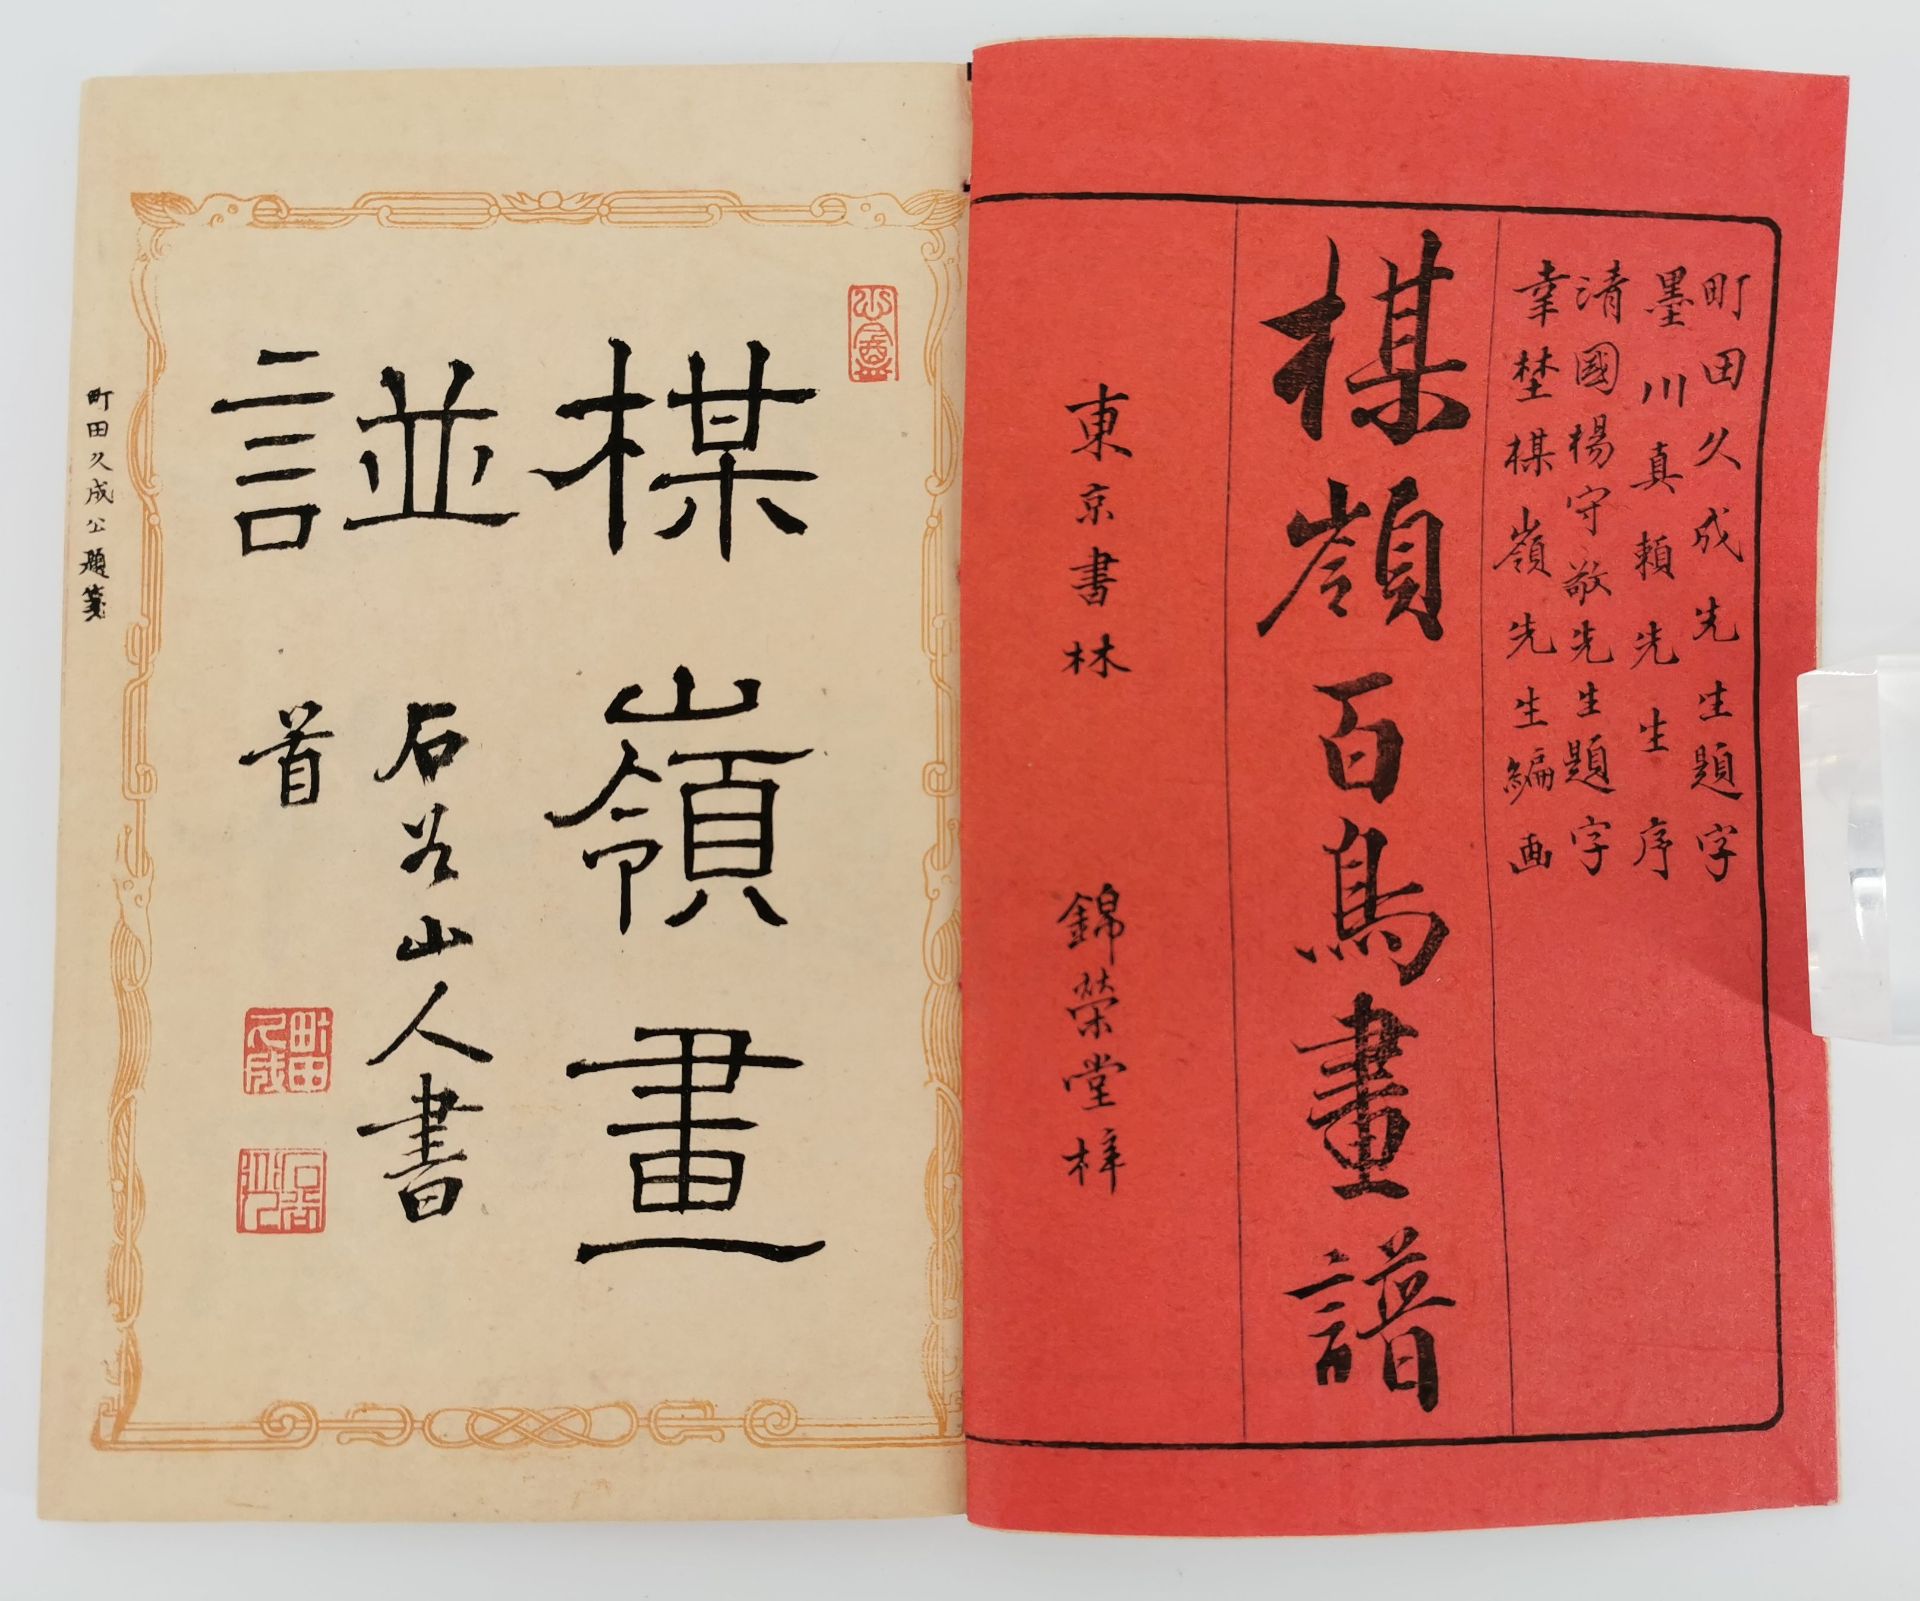 町田久成先生題字
墨川真頼先生序
清國楊守敬先生題字
幸埜楳嶺先生編画
楳嶺百鳥畫譜
東京書林 錦榮堂梓
楳嶺畫
諩
石谷山人書
首
町田久成
町田久成公題箋